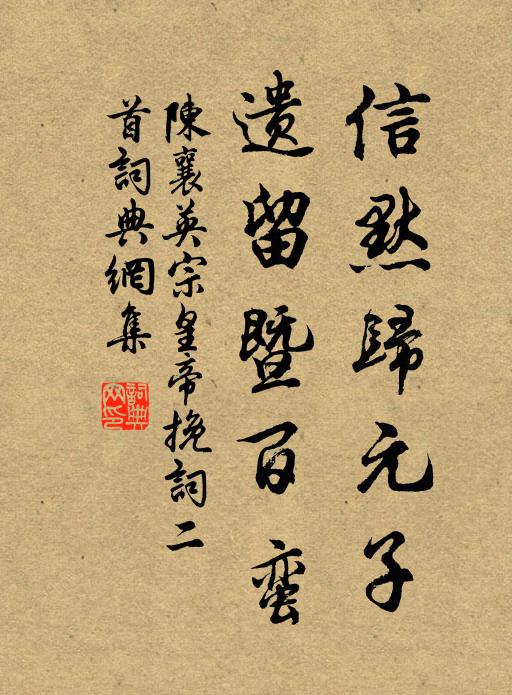 信默歸元子
遗留暨百蛮
陳襄英宗皇帝挽詞二
首詞典網集
詞典网印